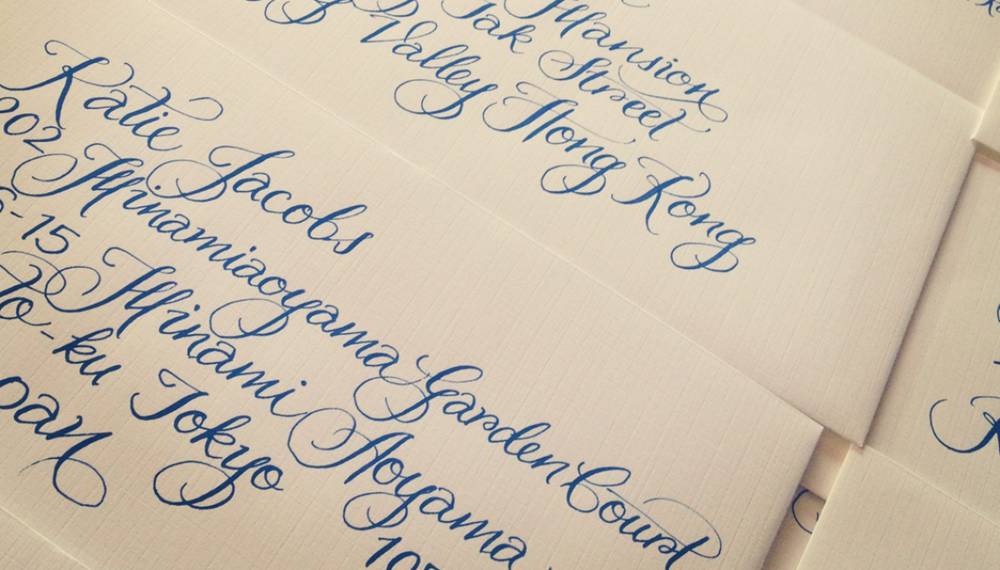 Mansion
Tak Street
Valley Hong Kong
Katie Jacobs
202 Minamiaoyama Garden Court
-15 Minami Aoyama
to-ku Tokyo 107
pan